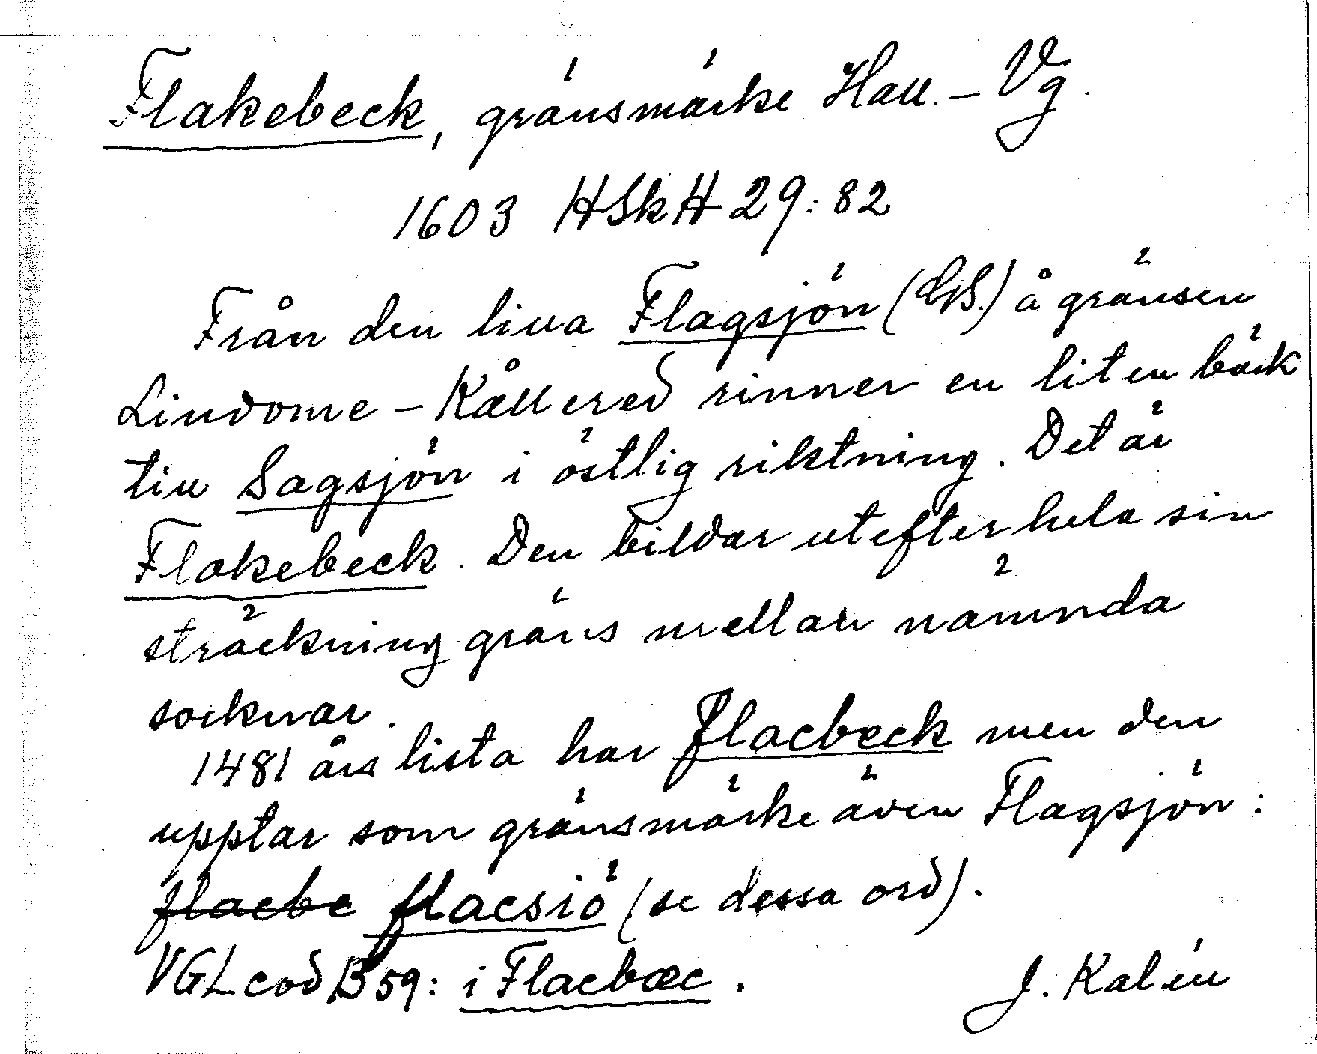 Flakebeck, gränsmärke Hall. – Vg.
1603 HSkH 29:82
Från den lilla Flagsjön (GB.) å gränsen
Lindome – Kållered rinner en liten bäck
till Sagsjön i östlig riktning. Det är
Flakebeck. Den bildar utefter hela sin
sträckning gräns mellan nämnda
socknar.
1481 års lista har flacbeck men den
upptar som gränsmärke även Flagsjön:
flacbe flacsiö (se dessa ord).
VGL cod B 59: i Flacbæc.
J. Kalén